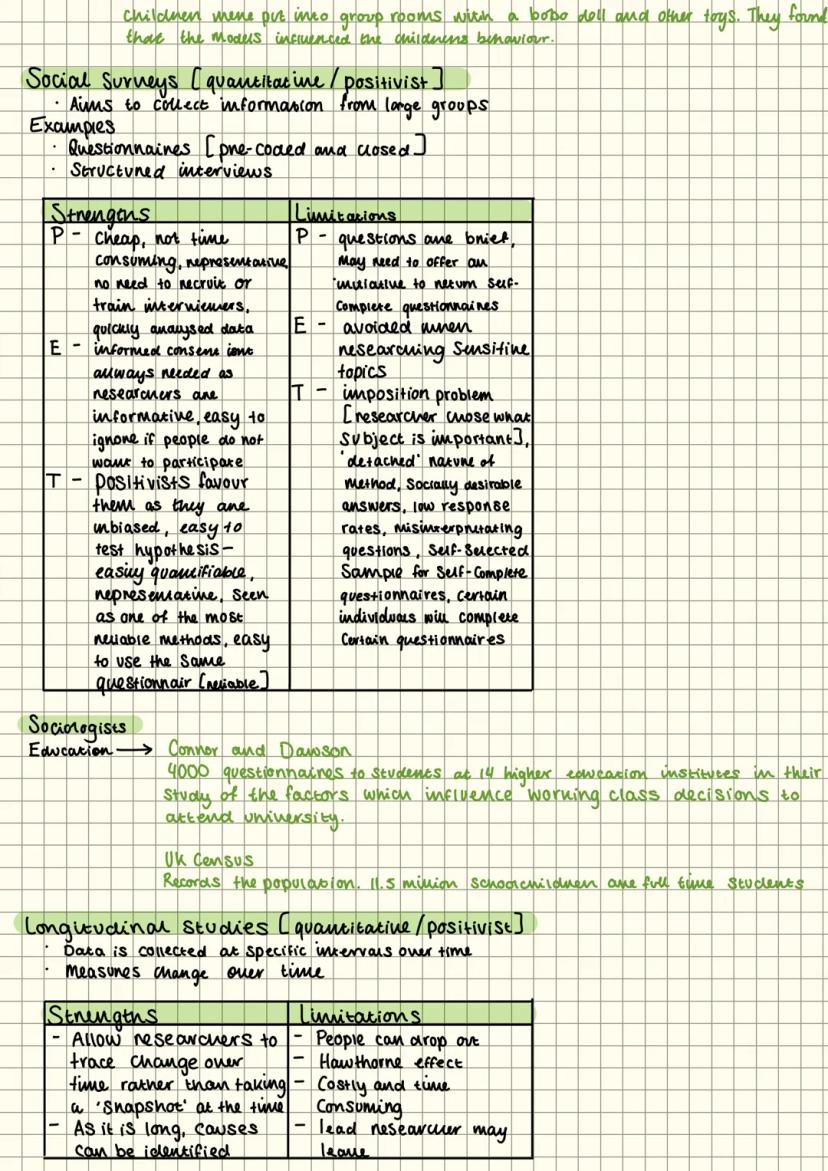 children were put into group rooms with a bobo doll and other toys. They found
that the models influenced the childrens behaviour.
Social Surveys [quantitative/positivist]
· Aims to collect information from large groups
Examples
· Questionnaires [pre-coded and closed]
· Structured interviews
Strengths
P - Cheap, not time
consuming, representative,
no need to recruit or
train interviewers,
quickly analysed data
E - informed consent isnt
always needed as
researchers are
informative, easy to
ignore if people do not
want to participate
T - positivists favour
them as they are
unbiased, easy to
test hypothesis-
easily quantifiable,
representative, seen
as one of the most
reliable methods, easy
to use the same
questionnair [reliable]
Limitations
P - questions are brief,
May need to offer an
initiative to return self-
complete questionnaires
E - avoided when
researching sensitive
topics
T - imposition problem
[researcher chose what
subject is important],
'detached' nature of
method, socially desirable
answers, low response
rates, misinterpretating
questions, self-selected
sample for self-complete
questionnaires, certain
individuals will complete
certain questionnaires
Sociologists
Education → Connor and Dawson
4000 questionnaires to students at 14 higher education institutes in their
study of the factors which influence working class decisions to
attend university.
UK Census
Records the population. 11.5 million schoolchildren are full time students
Longitudinal Studies [quantitative/positivist]
· Data is collected at specific intervals over time
· Measures change over time
Strengths
- Allow researchers to
trace change over
time rather than taking
a 'snapshot' at the time
- As it is long, causes
can be identified
Limitations
- People can drop out
- Hawthorne effect
- Costly and time
consuming
- lead researcher may
leave